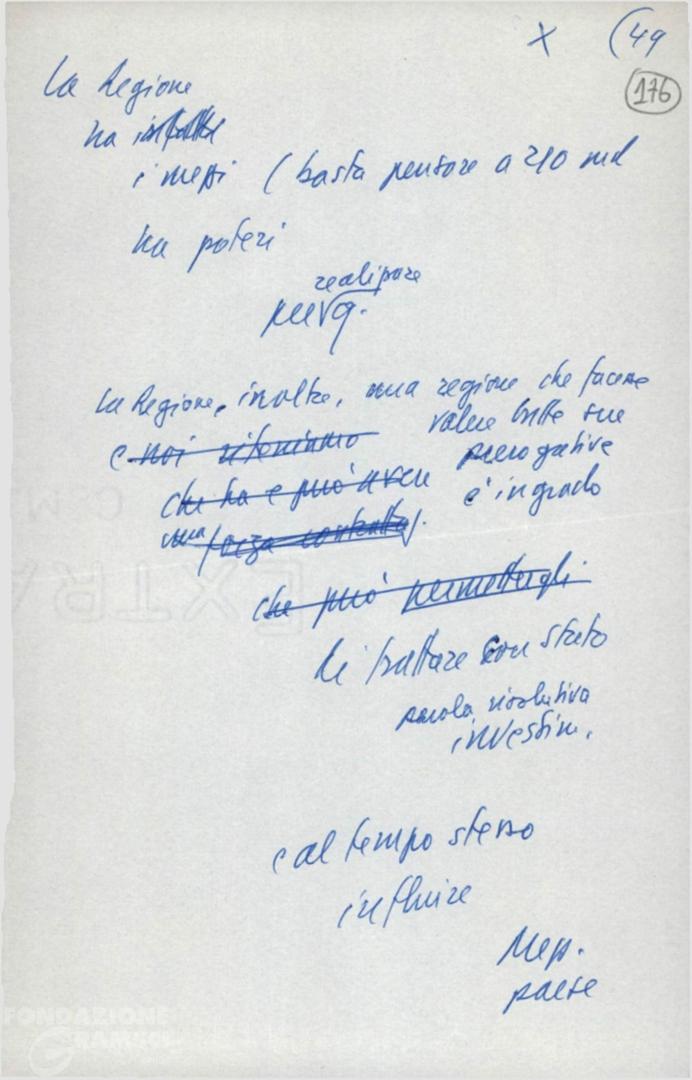 X (49
176
La Regione
ha infatti
i mezzi (basta pensare a 210 md
ha poteri
realizzare
La Regione, inoltre, una regione che facesse
valere tutte sue
e noi riteniamo
prerogative
che ha e può avere
è in grado
una forza contratt.
che può permettergli
di trattare con stato
parola risolutiva
investim.
e al tempo stesso
influire
Mezz.
paese
FONDAZIONE
GRAMSCI
EXTRA